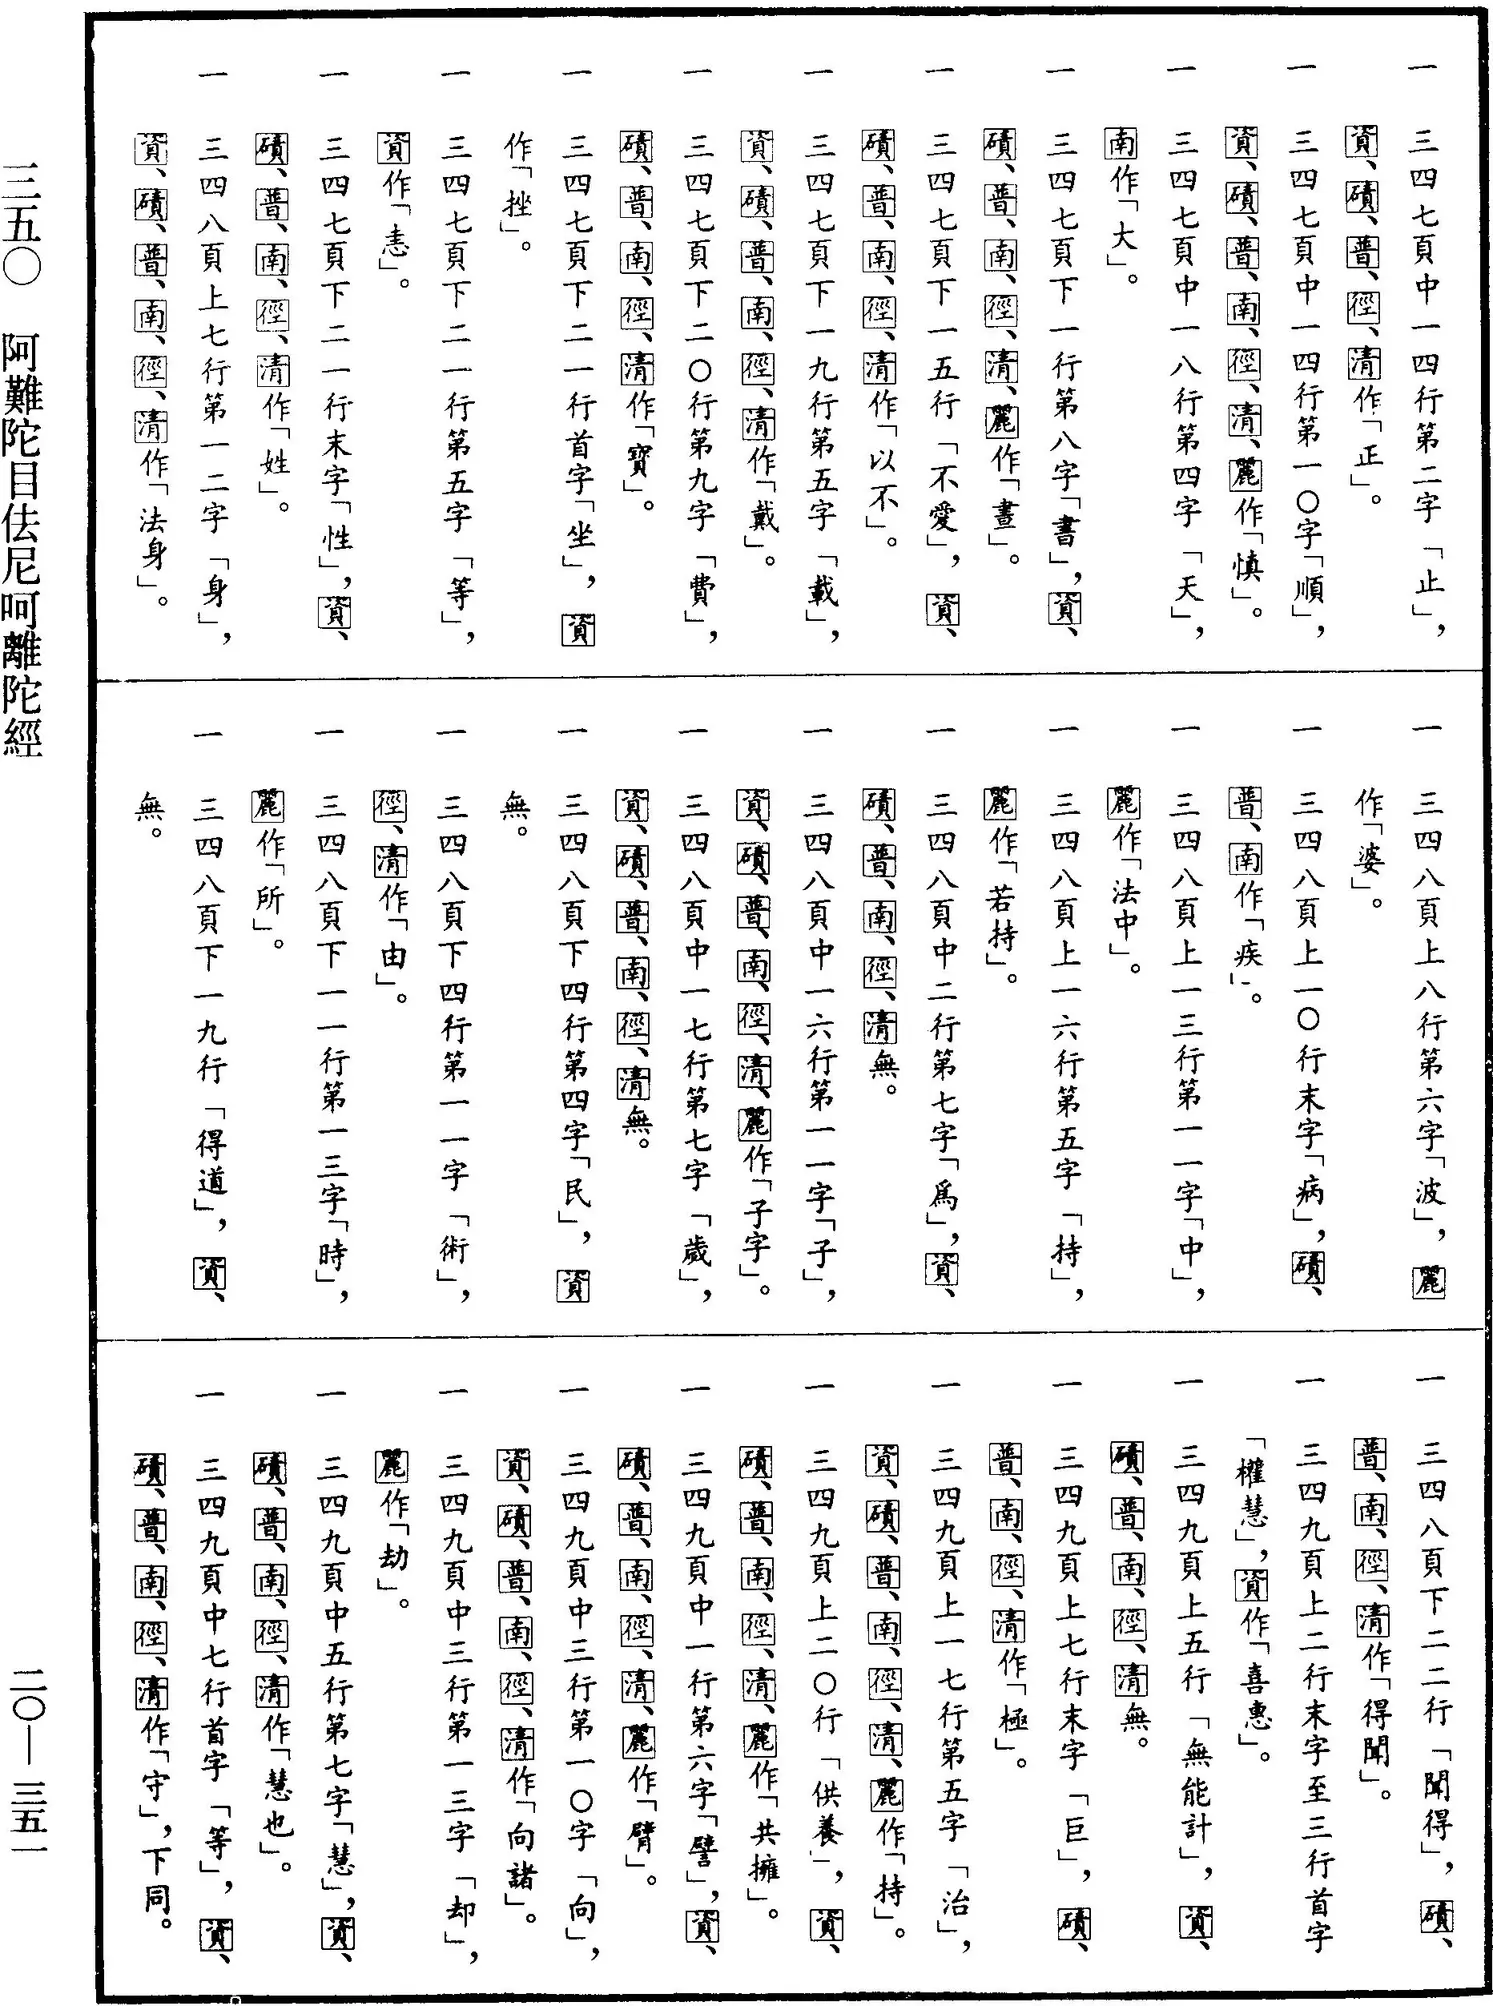 一　三四七頁中一四行第二字「止」，
資、磧、普、徑、清作「正」。
一　三四七頁中一四行第一〇字「順」，
資、磧、普、南、徑、清、麗作「慎」。
一　三四七頁中一八行第四字「天」，
南作「大」。
一　三四七頁下一行第八字「書」，資、
磧、普、南、徑、清、麗作「晝」。
一　三四七頁下一五行「不愛」，資、
磧、普、南、徑、清作「以不」。
一　三四七頁下一九行第五字「載」，
資、磧、普、南、徑、清作「戴」。
一　三四七頁下二〇行第九字「費」，
磧、普、南、徑、清作「寶」。
一　三四七頁下二一行首字「坐」，資
作「挫」。
一　三四七頁下二一行第五字「等」，
資作「恚」。
一　三四七頁下二一行末字「性」，資、
磧、普、南、徑、清作「姓」。
一　三四八頁上七行第一二字「身」，
資、磧、普、南、徑、清作「法身」。
一　三四八頁上八行第六字「波」，麗
作「婆」。
一　三四八頁上一〇行末字「病」，磧、
普、南作「疾」。
一　三四八頁上一三行第一一字「中」，
麗作「法中」。
一　三四八頁上一六行第五字「持」，
麗作「若持」。
一　三四八頁中二行第七字「爲」，資、
磧、普、南、徑、清無。
一　三四八頁中一六行第一一字「子」，
資、磧、普、南、徑、清、麗作「子字」。
一　三四八頁中一七行第七字「歲」，
資、磧、普、南、徑、清無。
一　三四八頁下四行第四字「民」，資
無。
一　三四八頁下四行第一一字「術」，
徑、清作「由」。
一　三四八頁下一一行第一三字「時」，
麗作「所」。
一　三四八頁下一九行「得道」，資、
無。
一　三四八頁下二二行「聞得」，磧、
普、南、徑、清作「得聞」。
一　三四九頁上二行末字至三行首字
「權慧」，資作「喜惠」。
一　三四九頁上五行「無能計」，資、
磧、普、南、徑、清無。
一　三四九頁上七行末字「巨」，磧、
普、南、徑、清作「極」。
一　三四九頁上一七行第五字「治」，
資、磧、普、南、徑、清、麗作「持」。
一　三四九頁上二〇行「供養」，資、
磧、普、南、徑、清、麗作「共擁」。
一　三四九頁中一行第六字「譬」，資、
磧、普、南、徑、清、麗作「臂」。
一　三四九頁中三行第一〇字「向」，
資、磧、普、南、徑、清作「向諸」。
一　三四九頁中三行第一三字「却」，
麗作「劫」。
一　三四九頁中五行第七字「慧」，資、
磧、普、南、徑、清作「慧也」。
一　三四九頁中七行首字「等」，資、
磧、普、南、徑、清作「守」，下同。
三五〇　阿難陀目佉尼呵離陀經
二〇—三五一